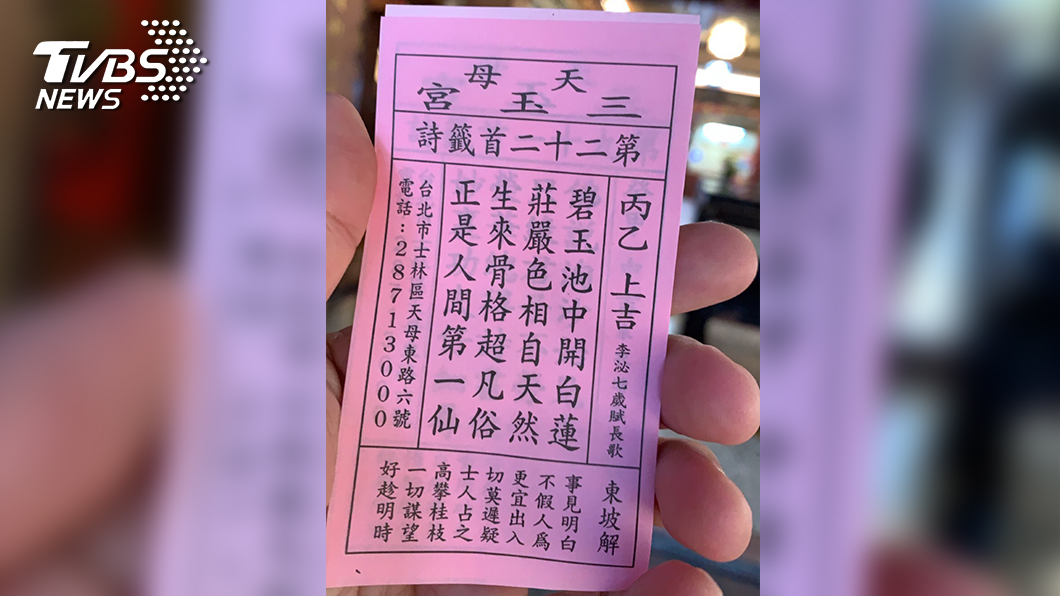 TVBS
NEWS
天母
三玉宮
第二十二首籤詩
丙乙 上吉 李泌七歲賦長歌
碧玉池中開白蓮
莊嚴色相自天然
生來骨格超凡俗
正是人間第一仙
台北市士林區天母東路六號
電話:28713000
東坡解
事見明白
不假人為
更宜出入
切莫遲疑
士人占之
高攀桂枝
一切謀望
好趁明時